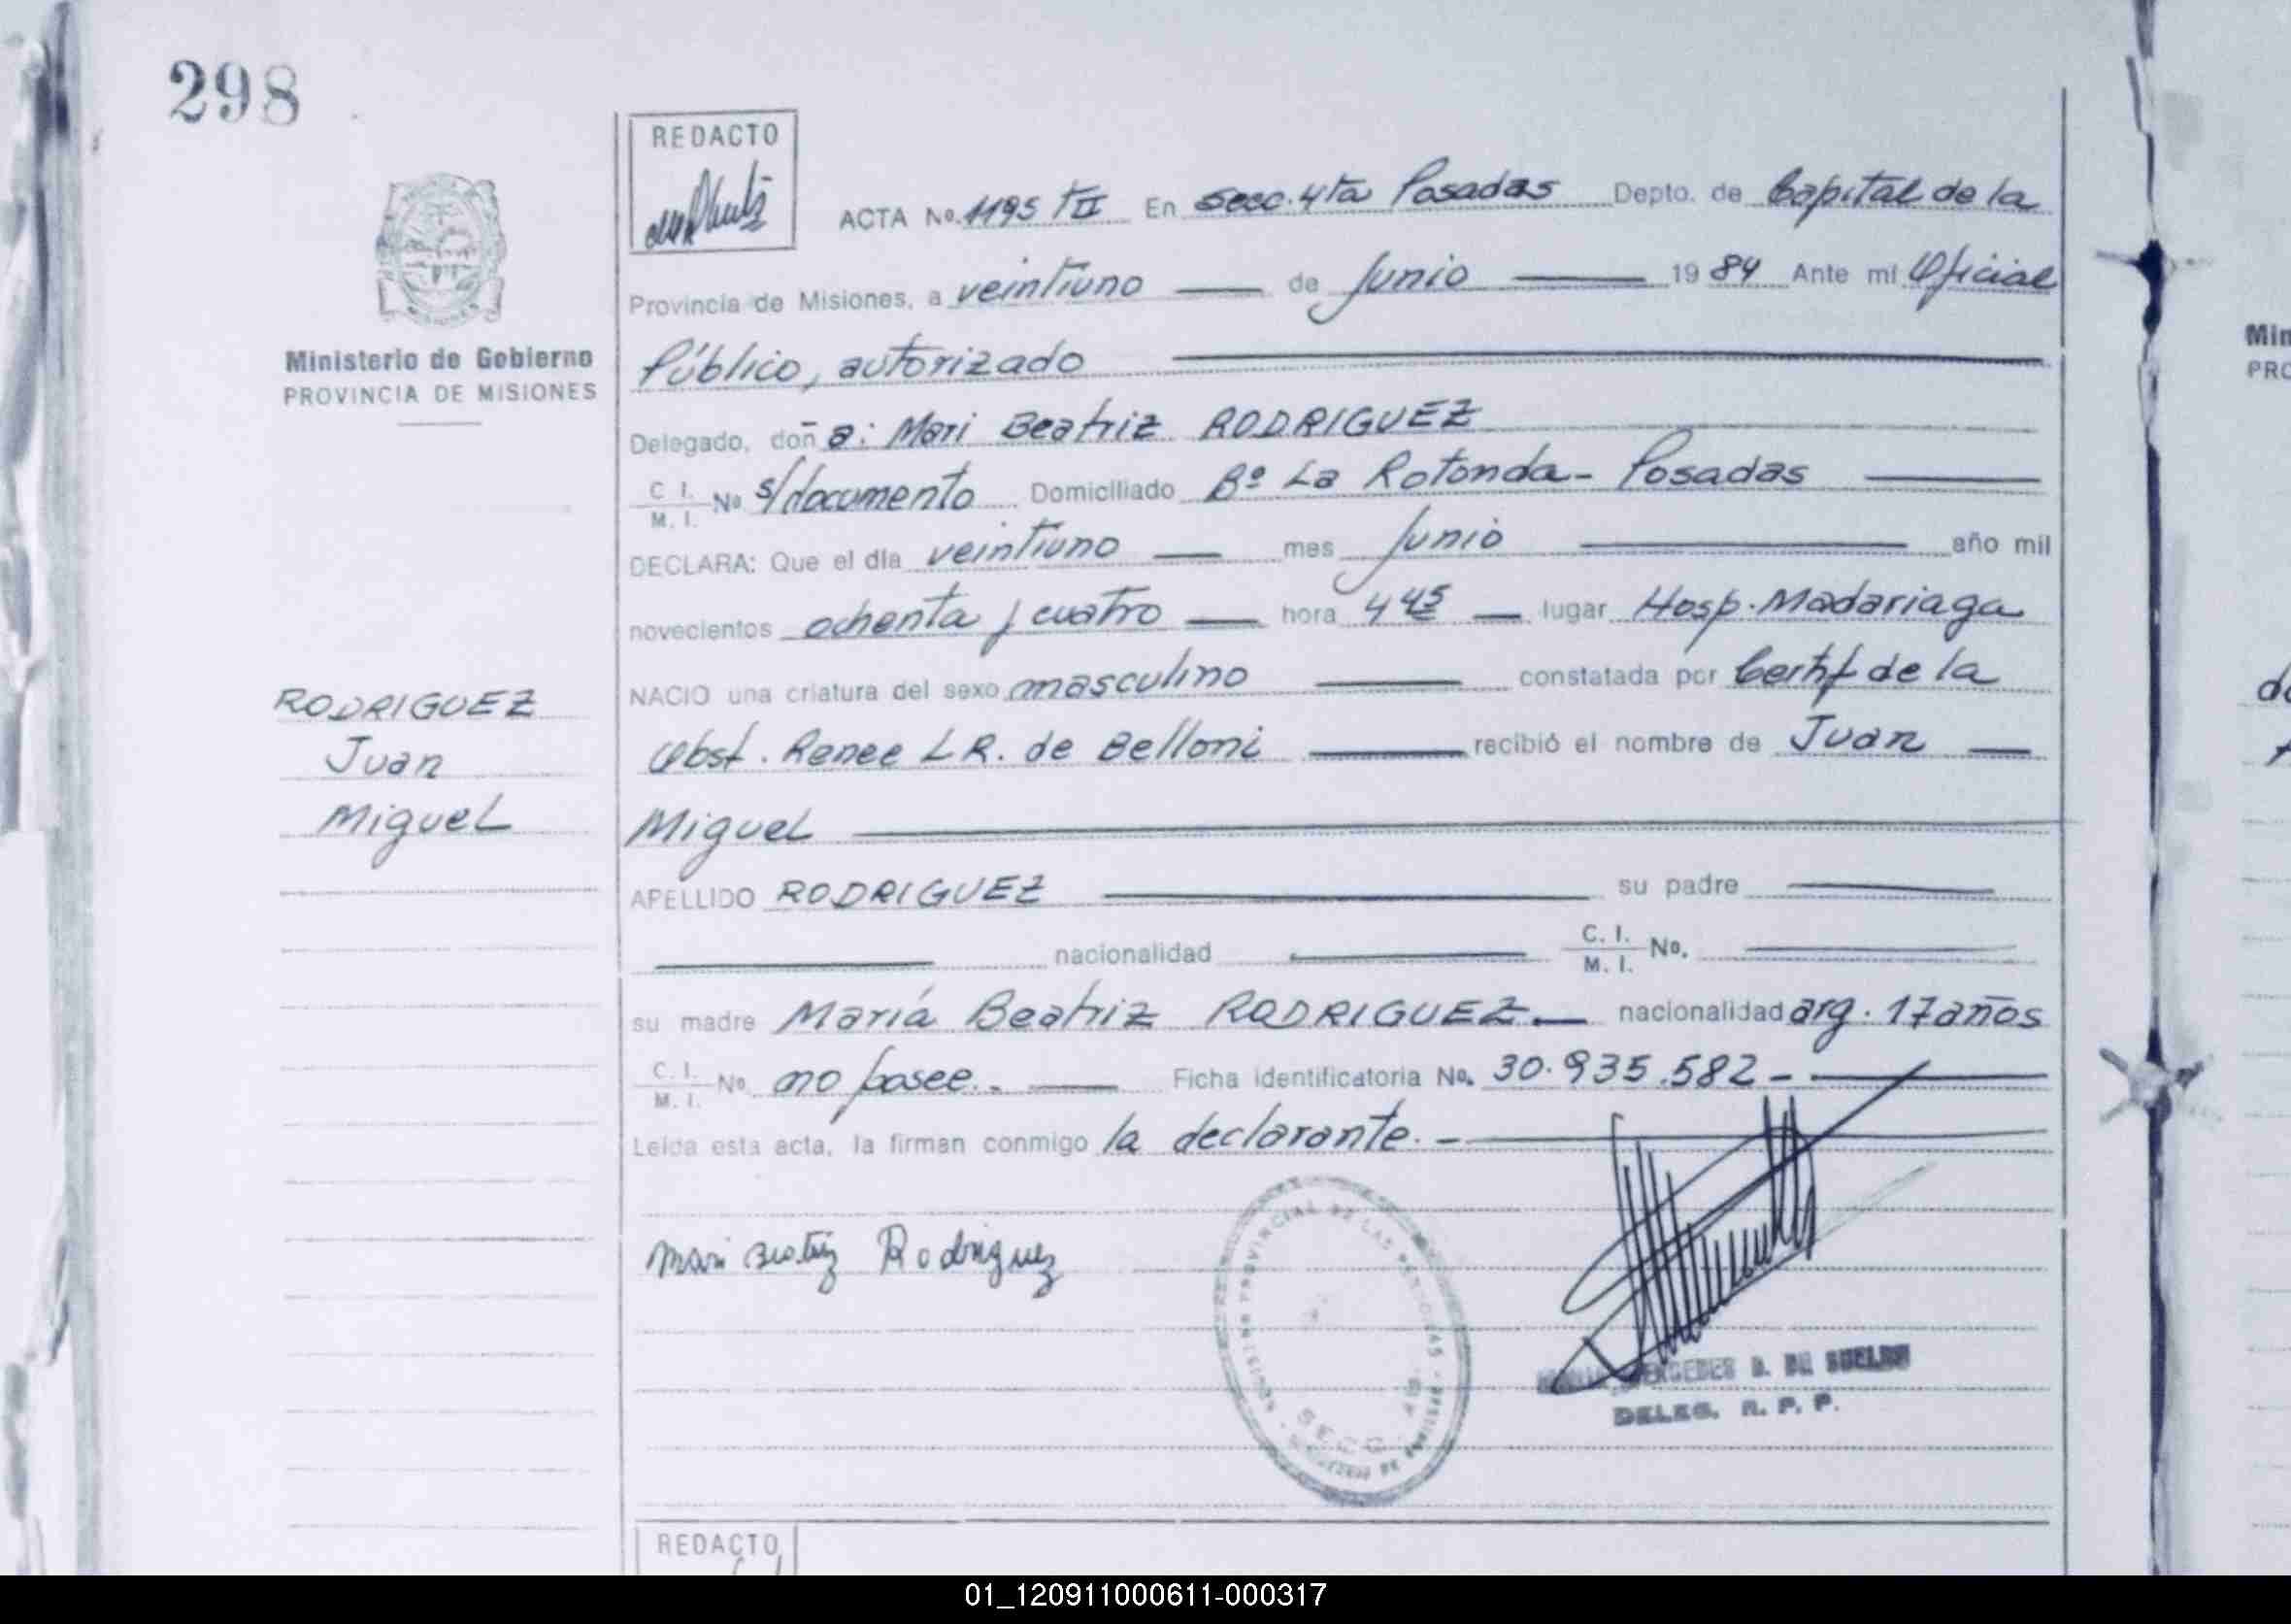 298
REDACTO
ACTA No. 1195 TII En Secc. 4ta Posadas Depto. de Capital de la
Provincia de Misiones, a veintiuno de Junio 1984 Ante mí Oficial
Ministerio de Gobierno
PROVINCIA DE MISIONES
Público, autorizado
Delegado, doña: Mari Beatriz RODRIGUEZ
C. I. M. I. No s/documento Domiciliado Bº La Rotonda - Posadas
DECLARA: Que el día veintiuno mes Junio año mil
novecientos ochenta y cuatro hora 4 45 lugar Hosp. Madariaga
NACIO una criatura del sexo masculino constatada por Certif de la
Obst. Renee L R. de Belloni recibió el nombre de Juan
Miguel
RODRIGUEZ
Juan
Miguel
APELLIDO RODRIGUEZ su padre
nacionalidad C. I. M. I. No.
su madre María Beatriz RODRIGUEZ. nacionalidad arg. 17 años
C. I. M. I. No. no posee. Ficha identificatoria No. 30.935.582 -
Leída esta acta, la firman conmigo la declarante. -
Mari Beatriz Rodriguez
MERCEDES B. DE
DELEG. R. P. P.
REDACTO
Min
PRO
01_120911000611-000317